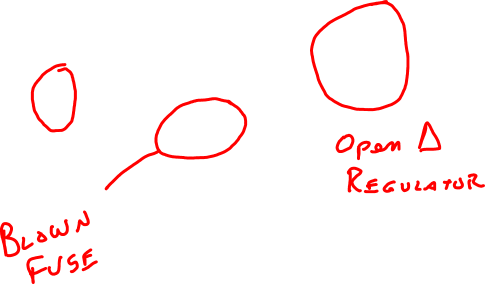 Open Δ
REGULATOR
BLOWN
FUSE